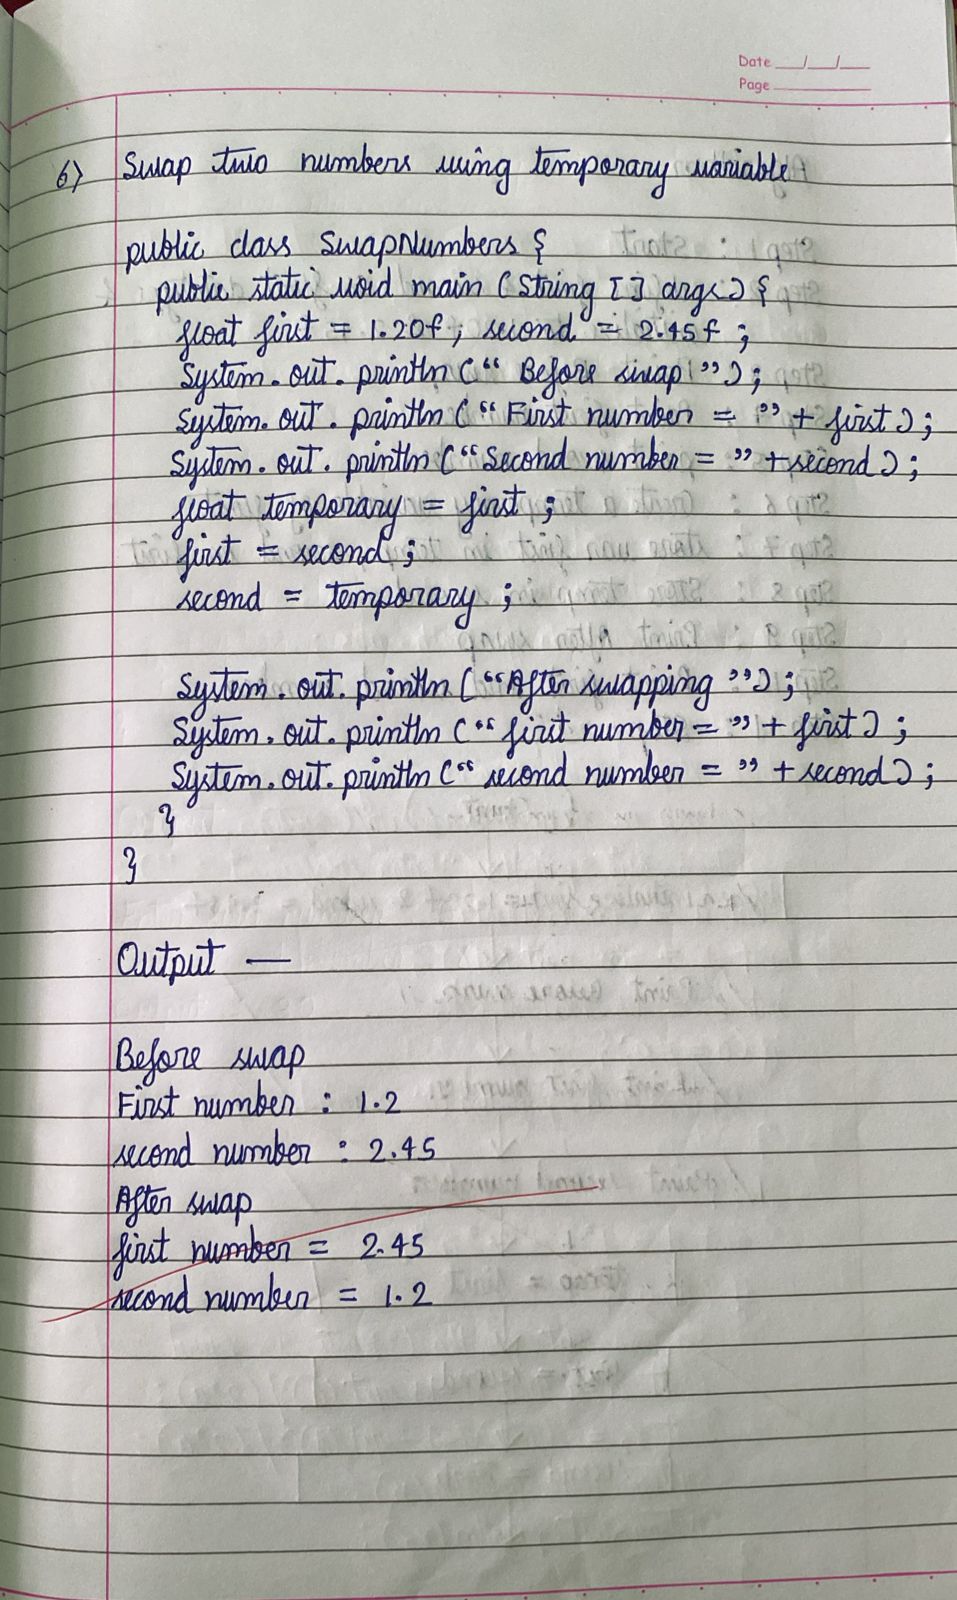 Date __/__/__
Page ________
6) Swap two numbers using temporary variable
public class SwapNumbers {
public static void main (String [] args) {
float first = 1.20f, second = 2.45f ;
System.out.println (“ Before swap ”) ;
System.out.println (“ First number = ” + first) ;
System.out.println (“Second number = ” + second) ;
float temporary = first ;
first = second ;
second = temporary ;
System.out.println (“After swapping ”) ;
System.out.println (“ first number = ” + first) ;
System.out.println (“ second number = ” + second) ;
}
}
Output —
Before swap
First number : 1.2
second number : 2.45
After swap
first number = 2.45
second number = 1.2